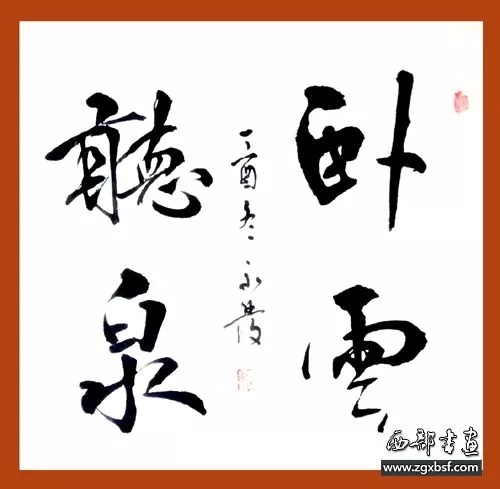 卧雲
聽泉
丁酉冬永發
西部書畫
www.zgxbsf.com